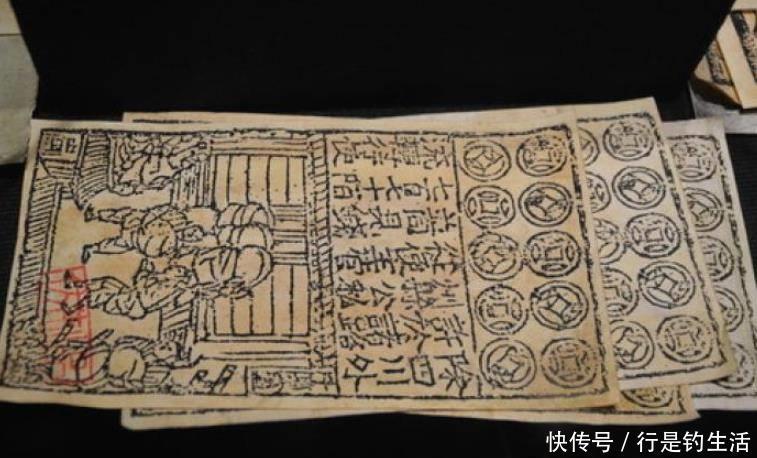 除四川外
許於諸路
州縣公私
從便主管
並同見錢
七百七十陌
流轉行使
快传号 / 行是钓生活